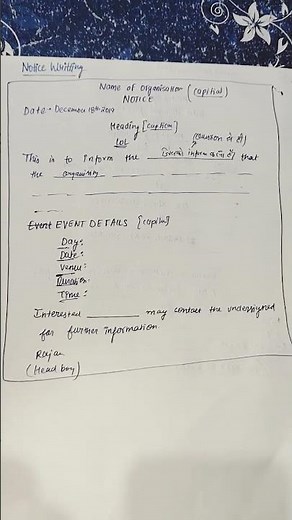 Notice Writting
Name of Organisation (capital)
NOTICE
Date - December 18th 2019
Heading [caption]
(question से ही)
This is to inform the ______ that
the organising ______
Event EVENT DETAILS [capital]
Day:
Date:
Venue:
Duration:
Time:
Interested ______ may contact the undersigned
for further information.
Rajan
(Head boy)